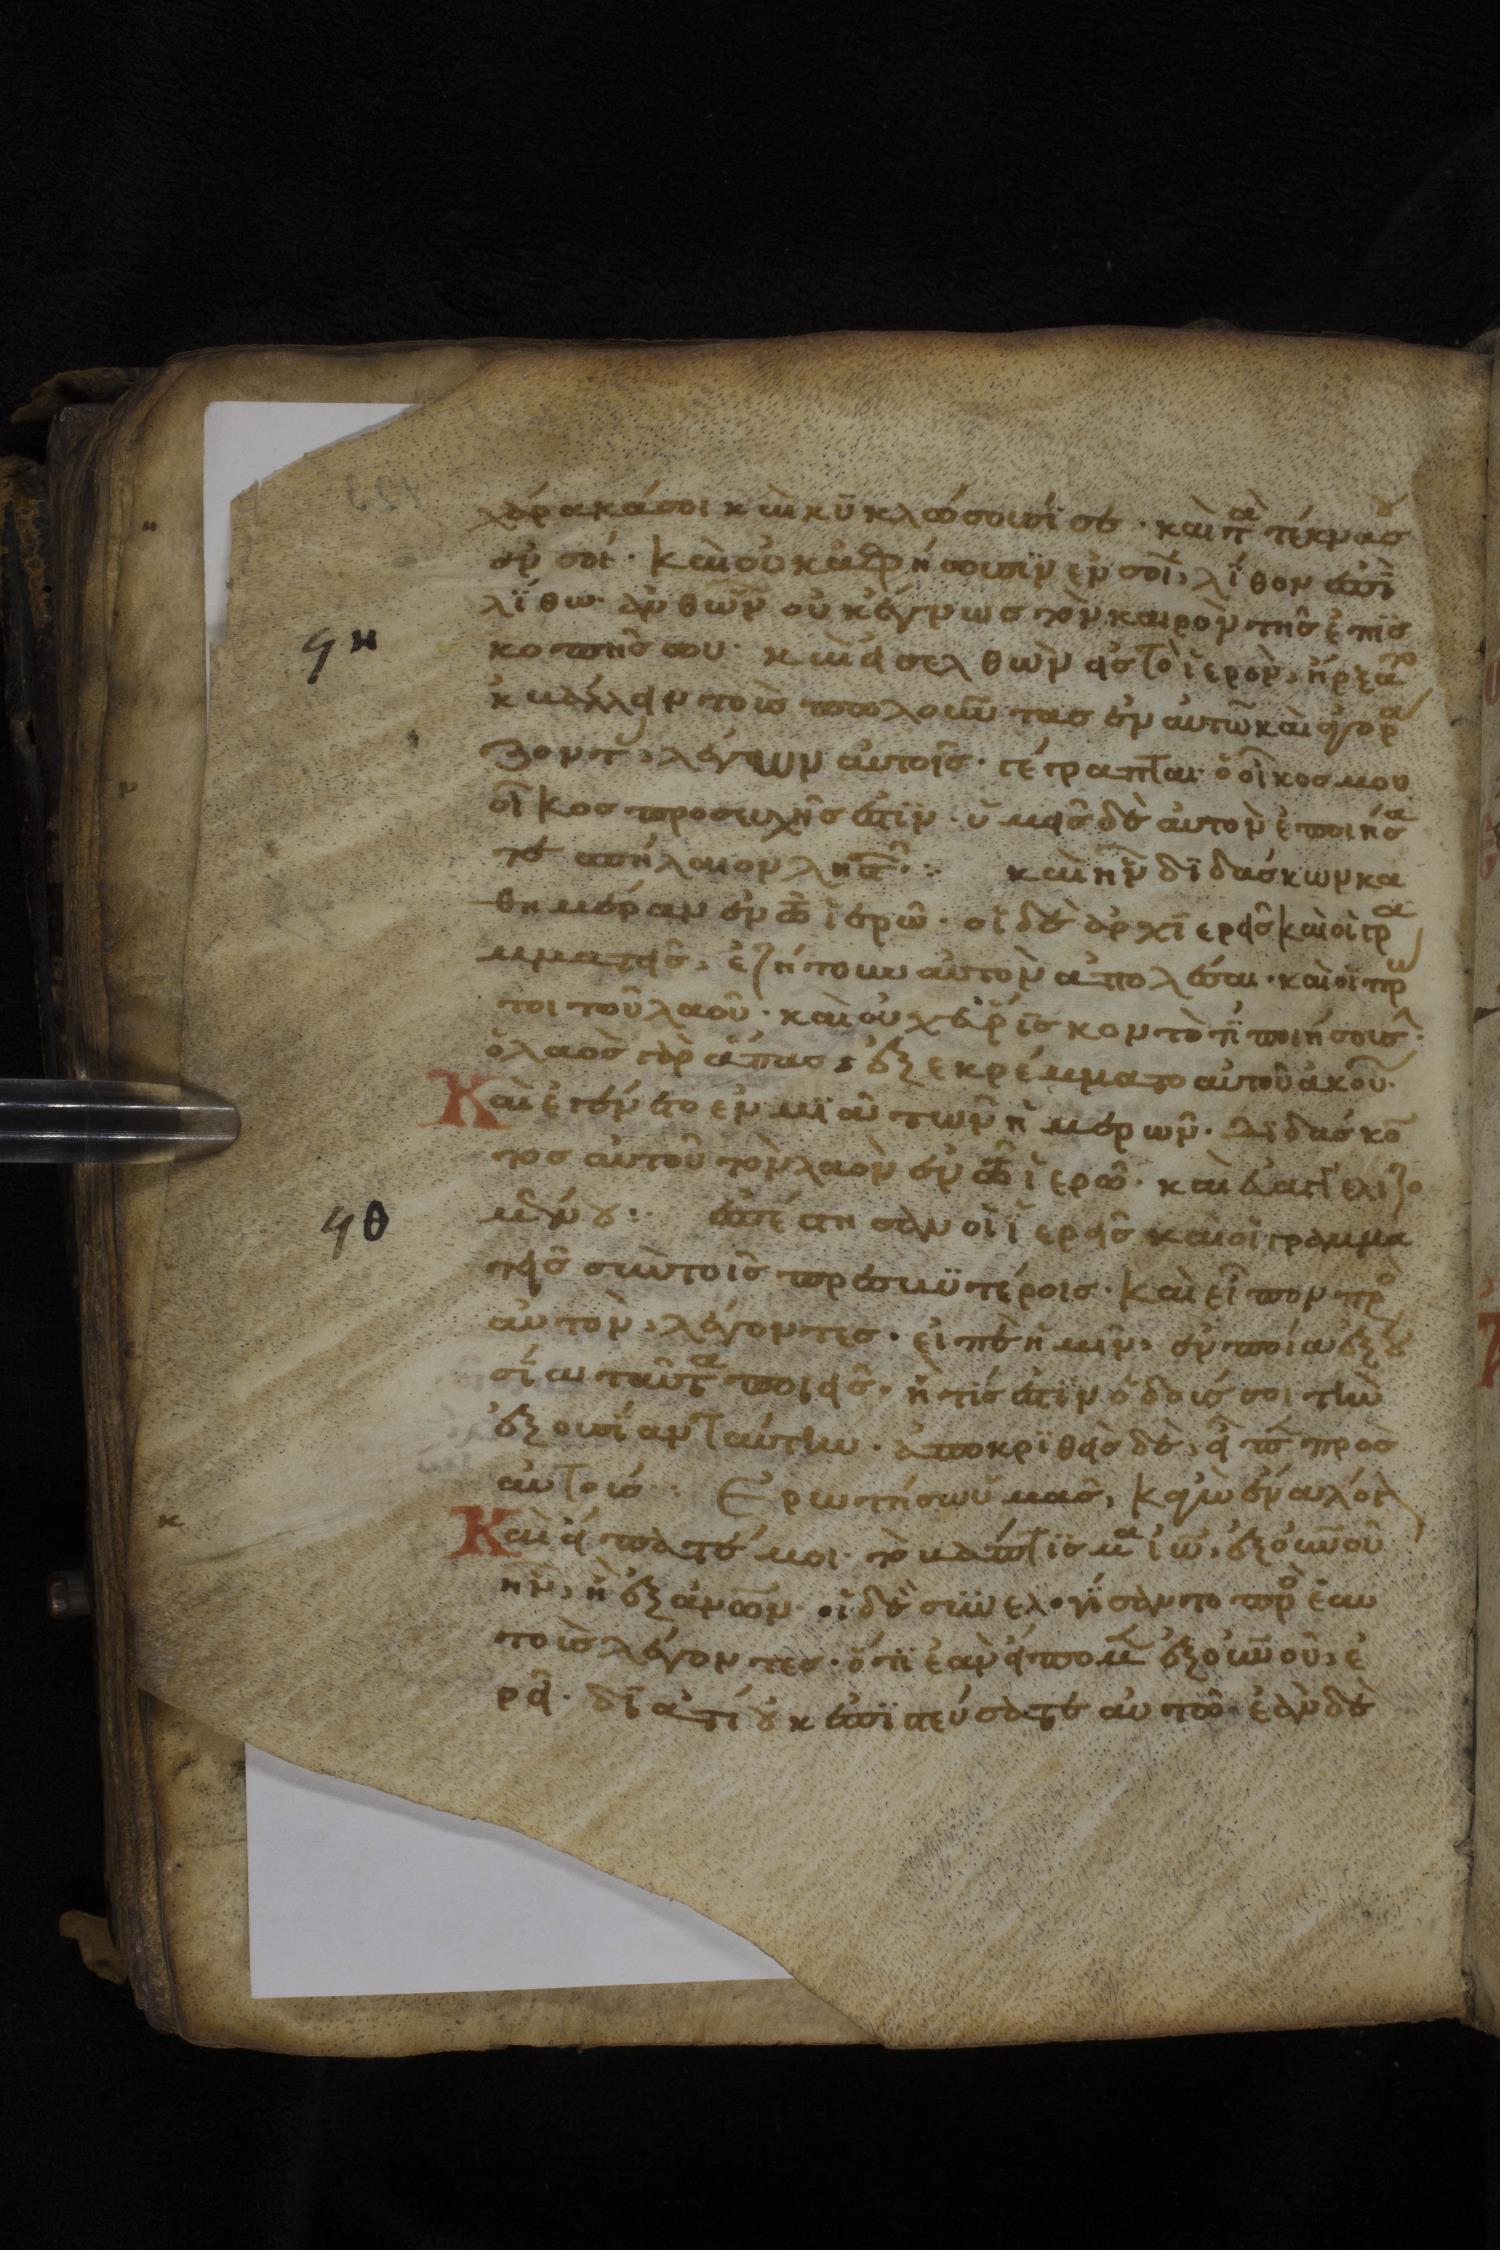 χάρακά σοι καὶ κϋκλώσουσί σε · καὶ τὰ τέκνα σου
ἐν σοί · καὶ οὐκ ἀφήσουσιν ἐν σοὶ, λίθον ἐπὶ
λίθω · ἀνθ ὧν οὐκ ἔγνως τὸν καιρὸν τῆς ἐπισ
κοπῆς σου · καὶ εἰσελθὼν εἰς τὸ ἱερὸν, ἤρξατο
ϟη
ἐκβάλλειν τοὺς πωλοῦντας ἐν αὐτῶ καὶ ἀγορά
ζοντας, λέγων αὐτοῖς · γέγραπται ὁ οἶκος μου
οἶκος προσευχῆς ἐστὶν · ὑμεῖς δὲ αὐτὸν ἐποιήσα
τε σπήλαιον λῃστῶν : καὶ ἦν διδάσκων κα
θημέραν ἐν τῶ ἱερῶ · οἱ δὲ ἀρχιερεῖς καὶ οἱ γρα
μματεῖς, ἐζήτουν αὐτὸν ἀπολέσαι · καὶ οἱ πρῶ
τοι τοῦ λαοῦ · καὶ οὐχ εὕρισκον τὸ τί ποιήσουσιν ·
ὁ λαὸς γὰρ ἅπας, ἐξεκρέμματο αὐτοῦ ἀκού ·
Καὶ ἐγένετο ἐν μιᾶ τῶν ἡμερῶν · διδάσκον
τος αὐτοῦ τὸν λαὸν ἐν τῶ ἱερῶ · καὶ εὐαγγελιζο
μένου : ἐπέστησαν οἱ ἱερεῖς καὶ οἱ γραμμα
ϟθ
τεῖς σὺν τοῖς πρεσβυτέροις · καὶ εἶπον πρὸς
αὐτὸν, λέγοντες · εἰπὲ ἡμῖν, ἐν ποία ἐξου
σία ταῦτα ποιεῖς · ἢ τίς ἐστιν ὁ δούς σοι τὴν
ἐξουσίαν ταύτην · ἀποκριθεὶς δὲ, εἶπε πρὸς
αὐτούς : Ερωτήσω ὑμᾶς, κἀγὼ ἕνα λόγον
Καὶ εἴπατέ μοι · τὸ βάπτισμα ἰω, ἐξ οὐνοῦ
ἦν, ἢ ἐξ ἀνων · οἱ δὲ συνελογίσαντο πρὸς ἑαυ
τοὺς λέγοντες · ὅτι ἐὰν εἴπομεν ἐξ οὐνοῦ, ἐ
ρεῖ · διατί οὐκ ἐπιστεύσατε αὐτῶ · ἐὰν δὲ